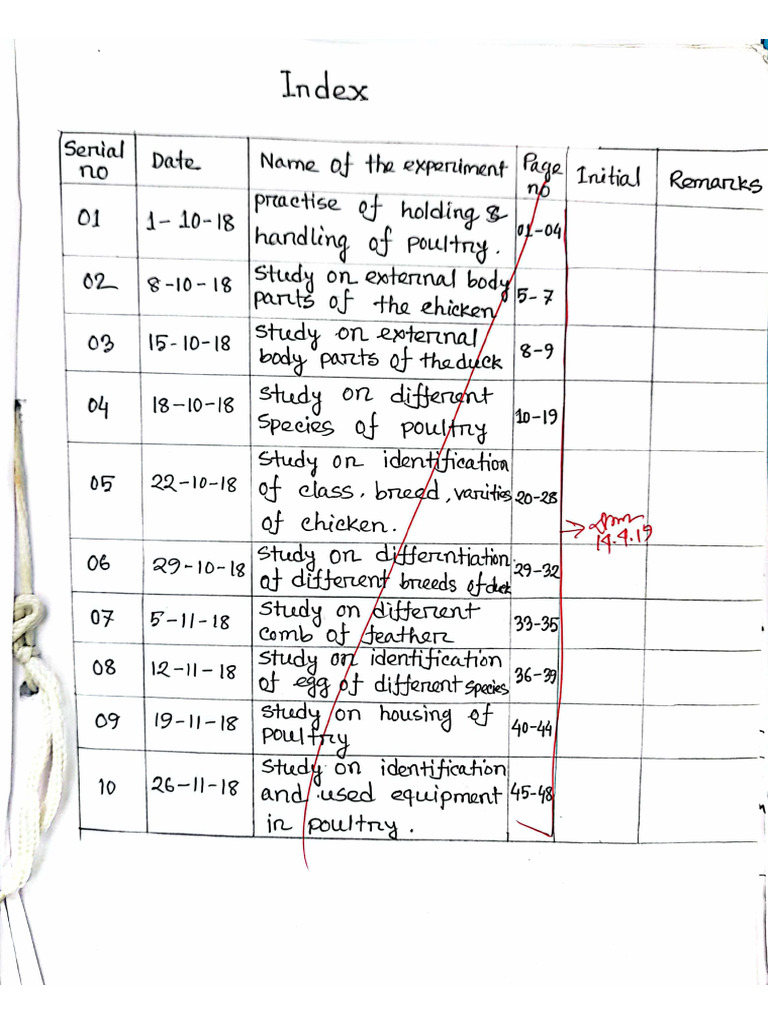 Index
Serial no Date Name of the experiment Page no Initial Remarks
01 1-10-18 practise of holding &
handling of poultry. 01-04
02 8-10-18 Study on external body
parts of the chicken 5-7
03 15-10-18 Study on external
body parts of the duck 8-9
04 18-10-18 Study on different
Species of poultry 10-19
05 22-10-18 Study on identification
of class, breed, varities 20-28
of chicken.
06 29-10-18 Study on differntiation
of different breeds of duck 29-32
07 5-11-18 Study on different
comb of feather 33-35
08 12-11-18 Study on identification
of egg of different species 36-39
09 19-11-18 Study on housing of
poultry 40-44
10 26-11-18 Study on identification
and used equipment 45-48
in poultry.
14.4.19